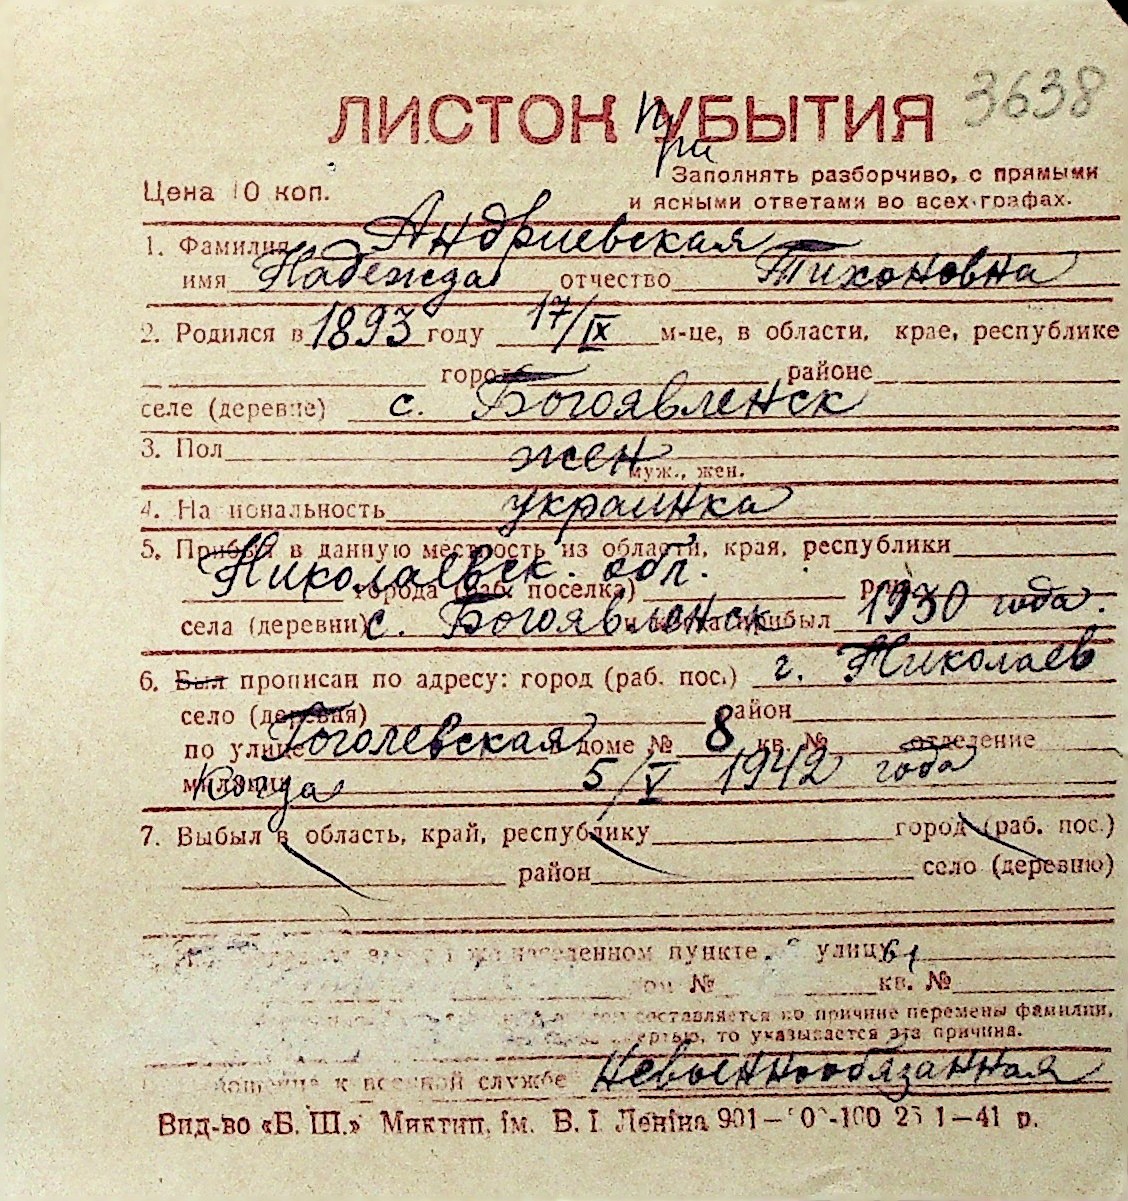 3638
ЛИСТОК УБЫТИЯ
При
Заполнять разборчиво, с прямыми
Цена 10 коп.
и ясными ответами во всех графах.
1. Фамилия Андриевская
имя Надежда отчество Тихоновна
2. Родился в 1893 году 17/IX м-це, в области, крае, республике
городе районе
селе (деревне) с. Богоявленск
3. Пол жен
муж., жен.
4. Национальность украинка
5. Прибыл в данную местность из области, края, республики
Николаевск. обл.
города (раб. поселка)
села (деревни) с. Богоявленск прибыл 1930 года.
6. Был прописан по адресу: город (раб. пос.) г. Николаев
село (деревня) район
по улице Гоголевская в доме № 8 кв. № отделение
милиции Когда 5/V 1942 года
7. Выбыл в область, край, республику город (раб. пос.)
район село (деревню)
населенном пункте улицу
№ кв. №
составляется по причине перемены фамилии,
то указывается эта причина.
к военной службе Невоеннообязанная
Вид-во «Б. Ш.» Миктип. ім. В. І. Леніна 901— -100 1—41 р.